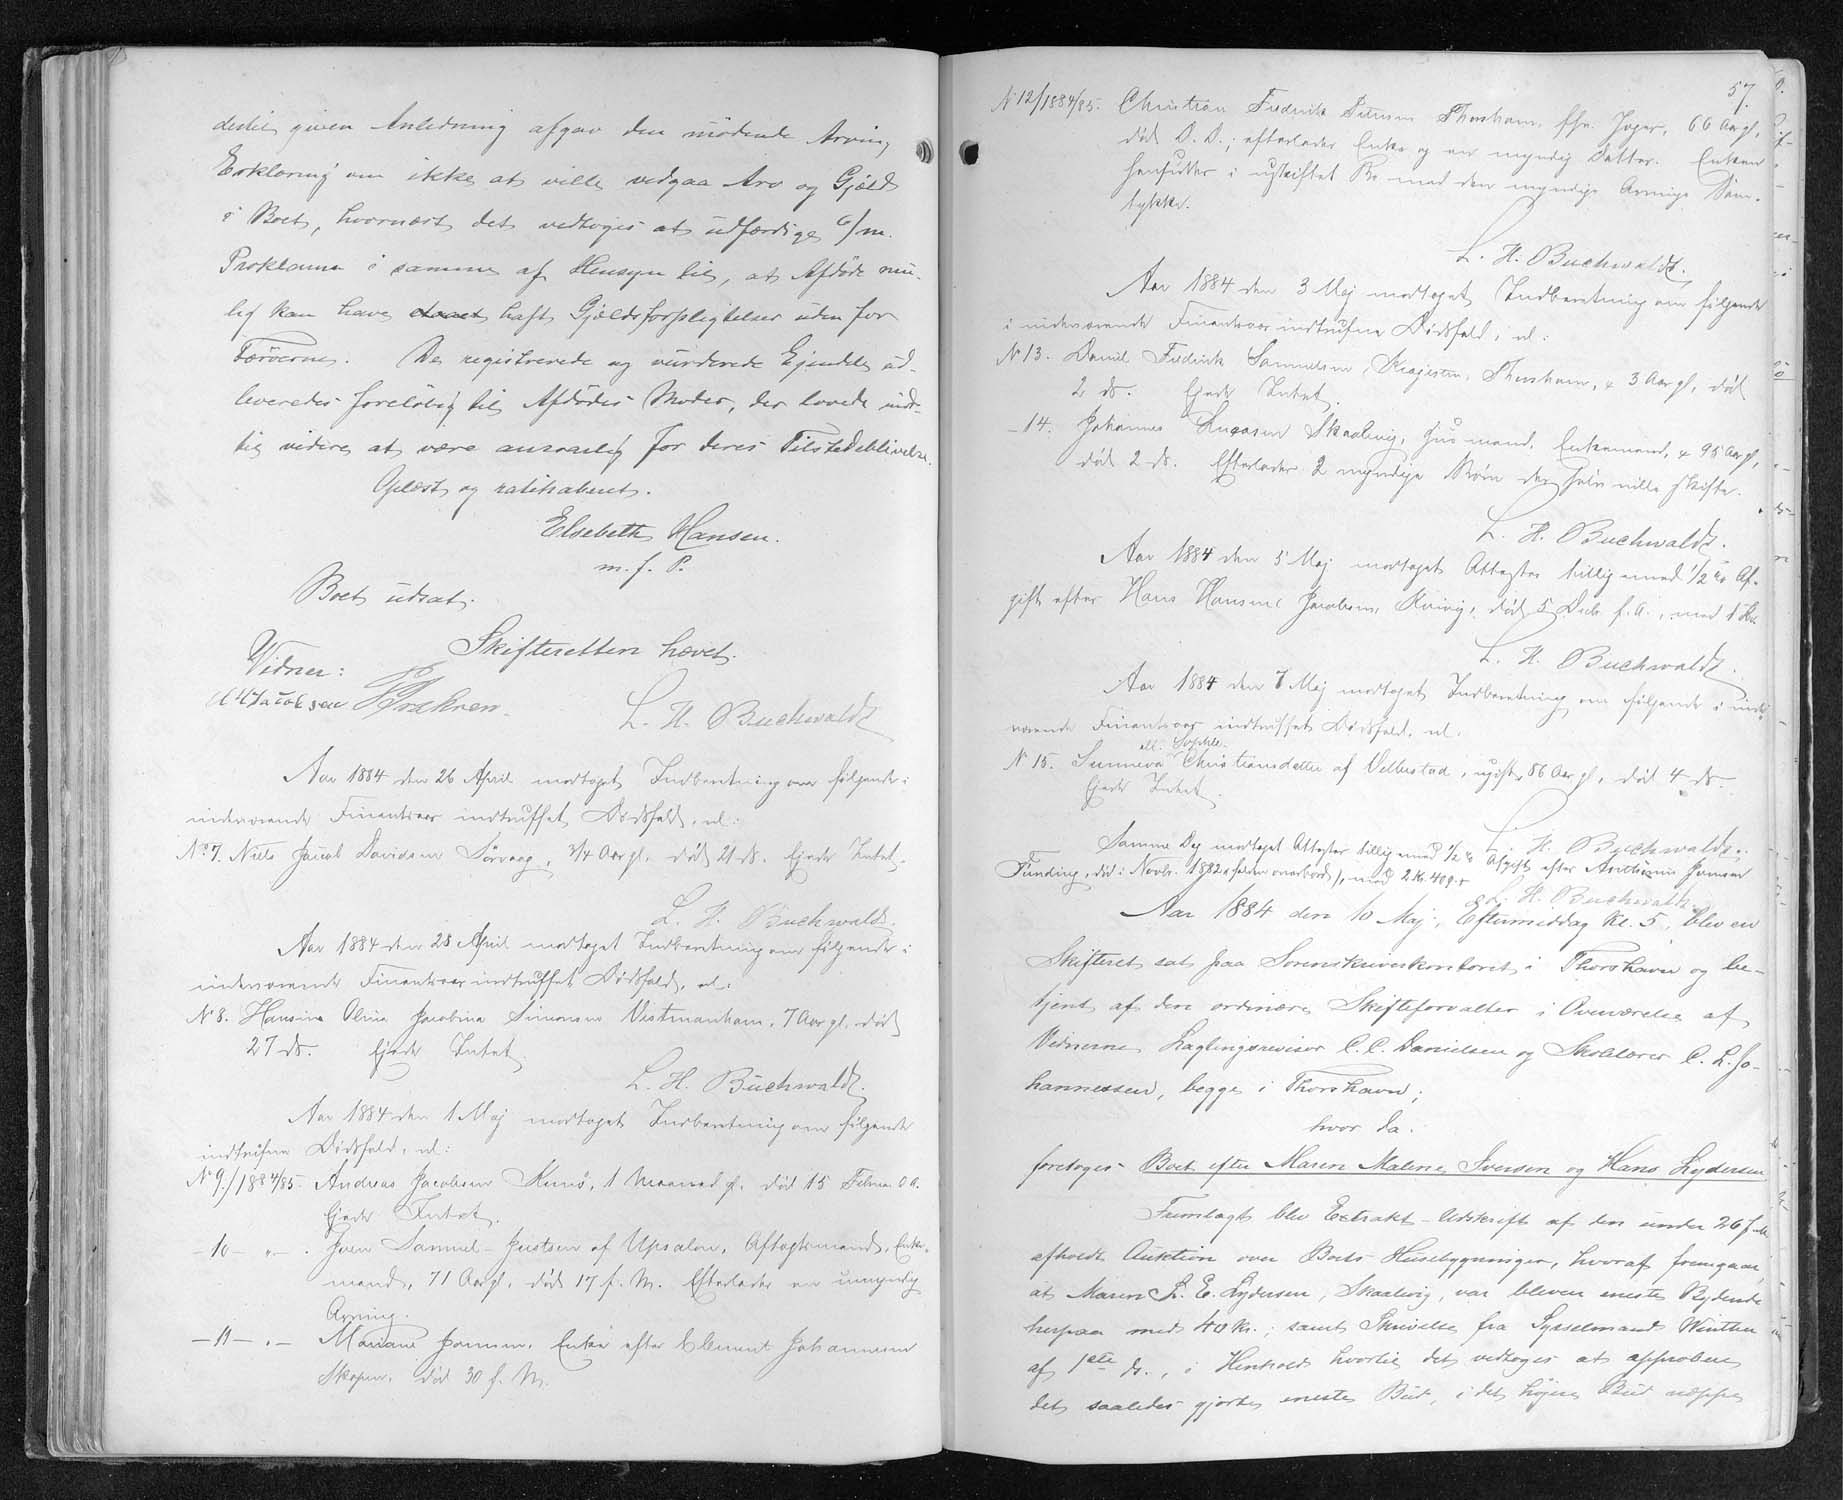 dertil given Anledning afgav den mödende Arving
Erklæring om ikke at ville vedgaa Arv og Gjæld
i Boet, hvornæst det vedtoges at udfærdige 6/m.
Proklama i samme af Hensyn til, at Afdöde mu-
lig kan have haft Gjældsforpligtelser uden for
Færöerne. De registrerede og vurderede Ejendele ud-
leveredes foreløbig til Afdödes Moder, der lovede ind-
til videre at være ansvarlig for deres Tilstedeblivelse.
Oplæst og ratihaberet.
Elsebeth Hansen.
m. f. P.
Boet udsat.
Skifteretten hævet.
Vidner:
Jacobsen
L. H. Buchwaldt
Aar 1884 den 26 April modtaget Indberetning om følgende i
indeværende Finantsaar indtruffet Dødsfald, nl:
No 7. Niels Jacob Davidsen Sörvaag, 3/4 Aar gl. död 21 ds. Ejede Intet.
L. H. Buchwaldt.
Aar 1884 den 28 April modtaget Indberetning om følgende i
indeværende Finantsaar indtruffet Dødsfald, nl:
No 8. Hansine Olina Jacobina Simonsen Vestmanhavn, 7 Aar gl. död
27 ds. Ejede Intet.
L. H. Buchwaldt.
Aar 1884 den 1 Maj modtaget Indberetning om følgende
indtrufne Dødsfald, nl:
No 9./1884/85. Andreas Jacobsen Kunö, 1 Maaned gl. död 15 Februar d. A.
Ejede Intet.
- 10 - " - . Joen Samuel Justsen af Upsalen, Aftægtsmand, Enke-
mand, 71 Aar gl. död 17 f. M. Efterlader en umyndig
Arving.
- 11 - " - Mariane Joensen, Enke efter Clement Johannesen
Skopen, död 30 f. M.
57.
No 12/1884/85. Christian Fredrik Thorshavn, fhv. Jæger, 66 Aar gl,
död D. D.; efterlader Enke og en myndig Datter. Enken
hensidder i uskiftet Bo med den myndige Arvings Sam-
tykke.
L. H. Buchwaldt.
Aar 1884 den 3 Maj modtaget Indberetning om følgende
i indeværende Finantsaar indtrufne Dødsfald, nl:
No 13. Daniel Fredrik Samuelsen, Thorshavn, 3 Aar gl, död
2 ds. Ejede Intet.
- 14. Johannes Lucasen Skaalevig, Huusmand, Enkemand, 95 Aar gl,
död 2 ds. Efterlader 2 myndige Børn der selv ville skifte.
L. H. Buchwaldt.
Aar 1884 den 5 Maj modtaget Attester tillig med 1/2 % Af-
gift efter Hans Hansen Jacobsen, Kvivig, död 5 Decb. f. A., med
L. H. Buchwaldt.
Aar 1884 den 7 Maj modtaget Indberetning om følgende i inde-
værende Finantsaar indtruffet Dødsfald, nl.
ell. Sophie
No 15. Sunneva Christiansdatter af Velbestad, ugift, 86 Aar gl, död 4 ds.
Ejede Intet.
L. H. Buchwaldt.
Samme Dag modtaget Attester tillig med 1/2 % Afgift efter Joensen
Funding, död i Novbr. 1882 (falden overbord), med 2 Kr. 40 Ø.
L. H. Buchwaldt.
Aar 1884 den 10 Maj, Eftermiddag Kl. 5, blev en
Skifteret sat paa Sorenskriverkontoret i Thorshavn og be-
tjent af den ordinære Skifteforvalter i Overværelse af
Vidnerne Lagtingsrevisor C. C. Danielsen og Skolelærer C. L. Jo-
hannessen, begge i Thorshavn;
hvor da:
foretoges Boet efter Maren Malene Iversen og Hans Lydersen
Fremlagt blev Extrakt-Udskrift af den under 26 f. M.
afholdt Auktion over Boets Husebygninger, hvoraf fremgaar,
at Maren K. E. Lydersen, Skaalevig, var bleven eneste Bydende
herpaa med 40 Kr.; samt Skrivelse fra Sysselmand Winther
af 1ste ds., i Henhold hvortil det vedtoges at approbere
det saaledes gjorte eneste Bud, i det højere Bud næppe